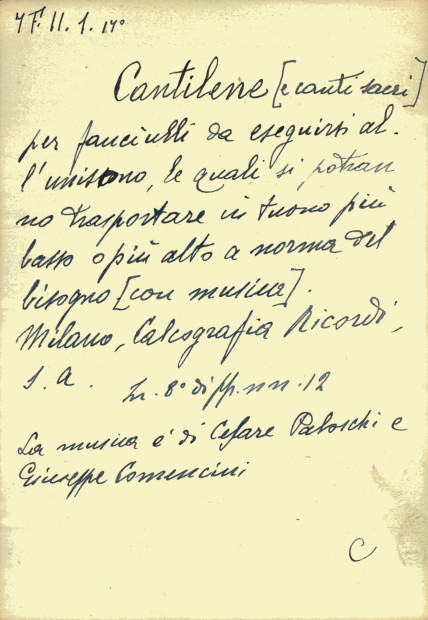 7 F. II. 1. 17°
Cantilene [e canti sacri]
per fanciulli da eseguirsi al-
l'unisono, le quali si potran
no trasportare in tuono più
basso o più alto a norma del
bisogno [con musica].
Milano, Calcografia Ricordi,
s. a. In. 8° di pp. nn. 12
La musica è di Cesare Paloschi e
Giuseppe Comencini
C